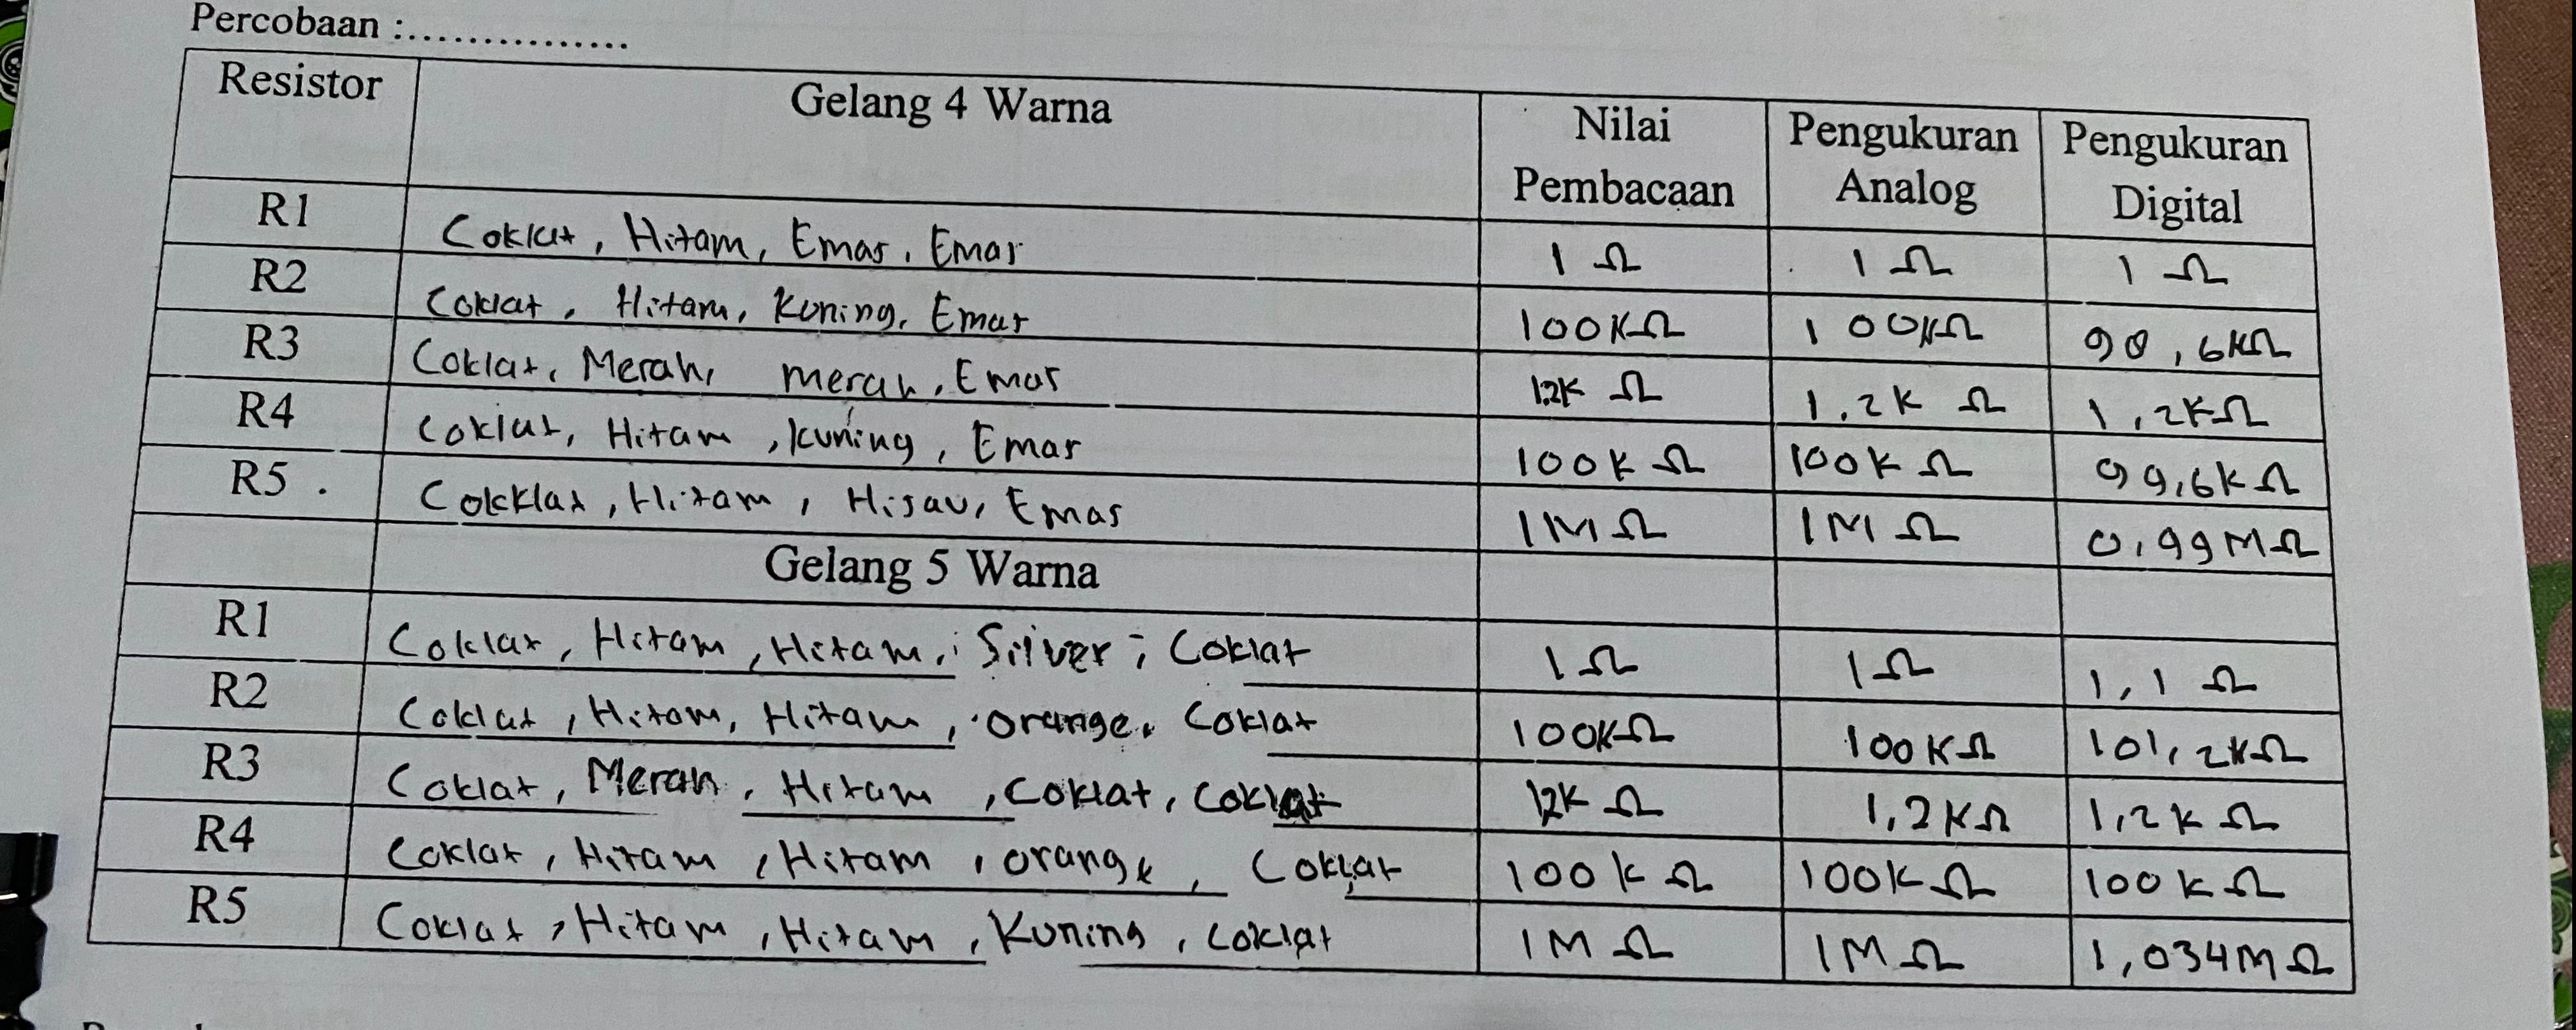 Percobaan :................
Resistor Gelang 4 Warna Nilai Pembacaan Pengukuran Analog Pengukuran Digital
R1 Coklat, Hitam, Emas, Emas 1 Ω 1 Ω 1 Ω
R2 Coklat, Hitam, Kuning, Emas 100KΩ 100KΩ 98,6KΩ
R3 Coklat, Merah, merah, Emas 1.2K Ω 1.2K Ω 1,2KΩ
R4 Coklat, Hitam, kuning, Emas 100K Ω 100K Ω 99,6K Ω
R5 Colcklat, Hitam, Hijau, Emas 1M Ω 1M Ω 0,99MΩ
Gelang 5 Warna
R1 Coklat, Hitam, Hitam, Silver, Coklat 1Ω 1Ω 1,1 Ω
R2 Coklat, Hitam, Hitam, orange, Coklat 100KΩ 100KΩ 101,2KΩ
R3 Coklat, Merah, Hitam, Coklat, Coklat 1,2K Ω 1,2KΩ 1,2K Ω
R4 Coklat, Hitam, Hitam, orange, Coklat 100K Ω 100K Ω 100K Ω
R5 Coklat, Hitam, Hitam, Kuning, Coklat 1M Ω 1M Ω 1,034M Ω